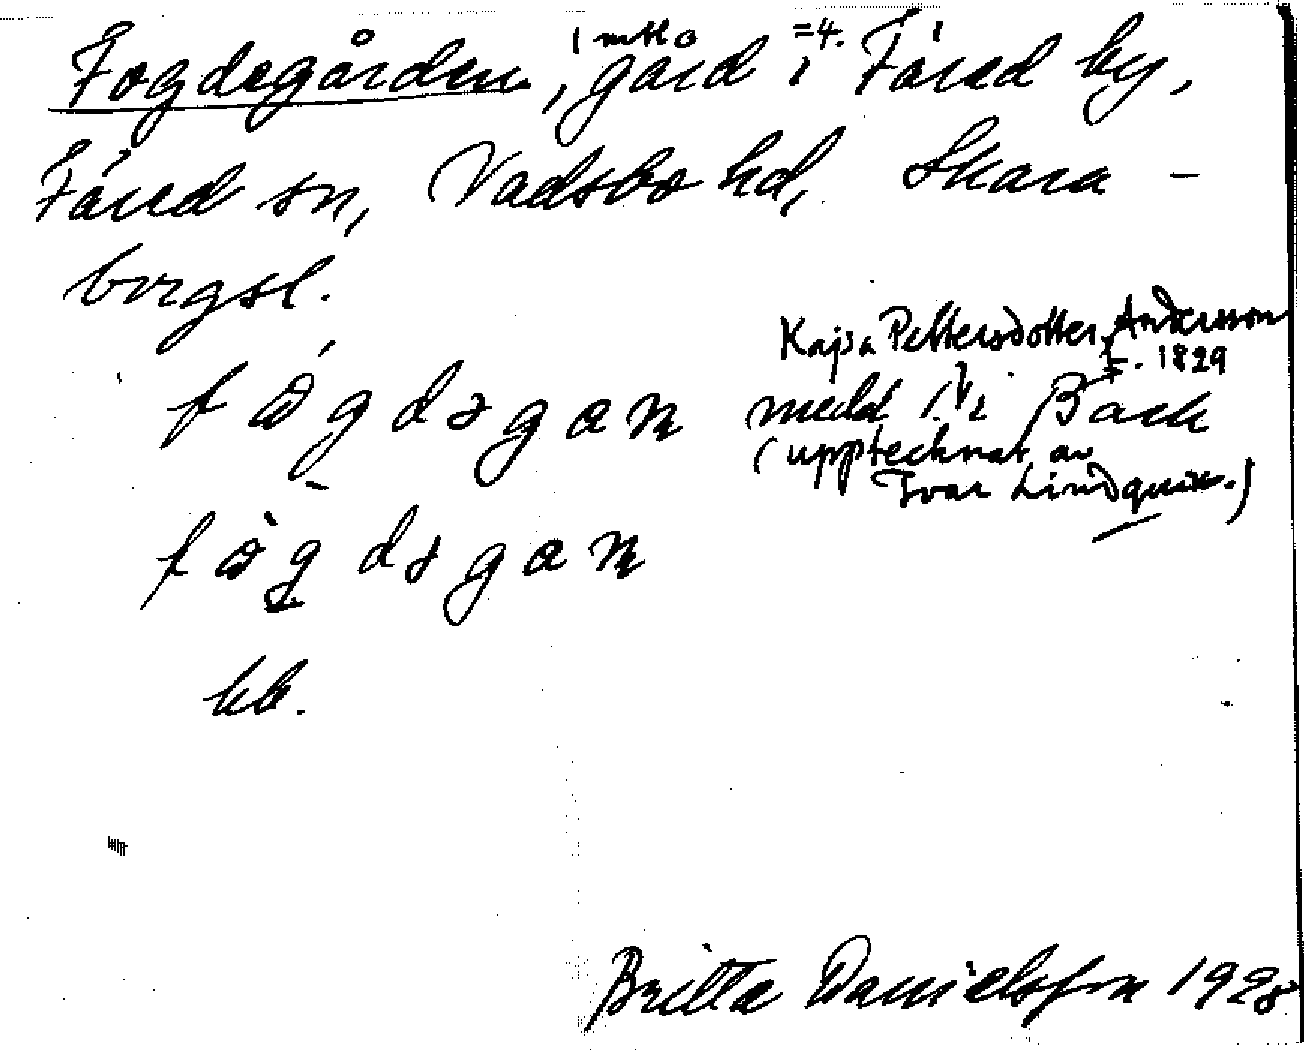 Fogdegården, 1 mtl o gård =4. i Fåred by,
Fåred sn, Vadsbo hd, Skara-
borgsl.
Kajsa Pettersdotter, Andersson
f. 1829
fógdəgan meddel. i Bäck
(upptecknat av
Ivar Lindquist.)
fògdəgan
kb.
Britta Danielsson 1928